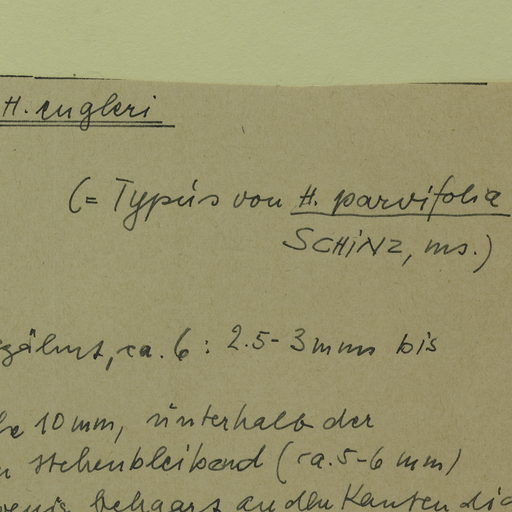 H. engleri
(= Typus von H. parvifolia
SCHINZ, ms.)
gezähnt, ca. 6 : 2.5-3 mm bis
10 mm, unterhalb der
stehenbleibend (ca. 5-6 mm)
wenig behaart an den Kanten